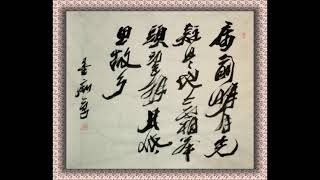 床前明月光
疑是地上霜舉
頭望明月低頭
思故乡